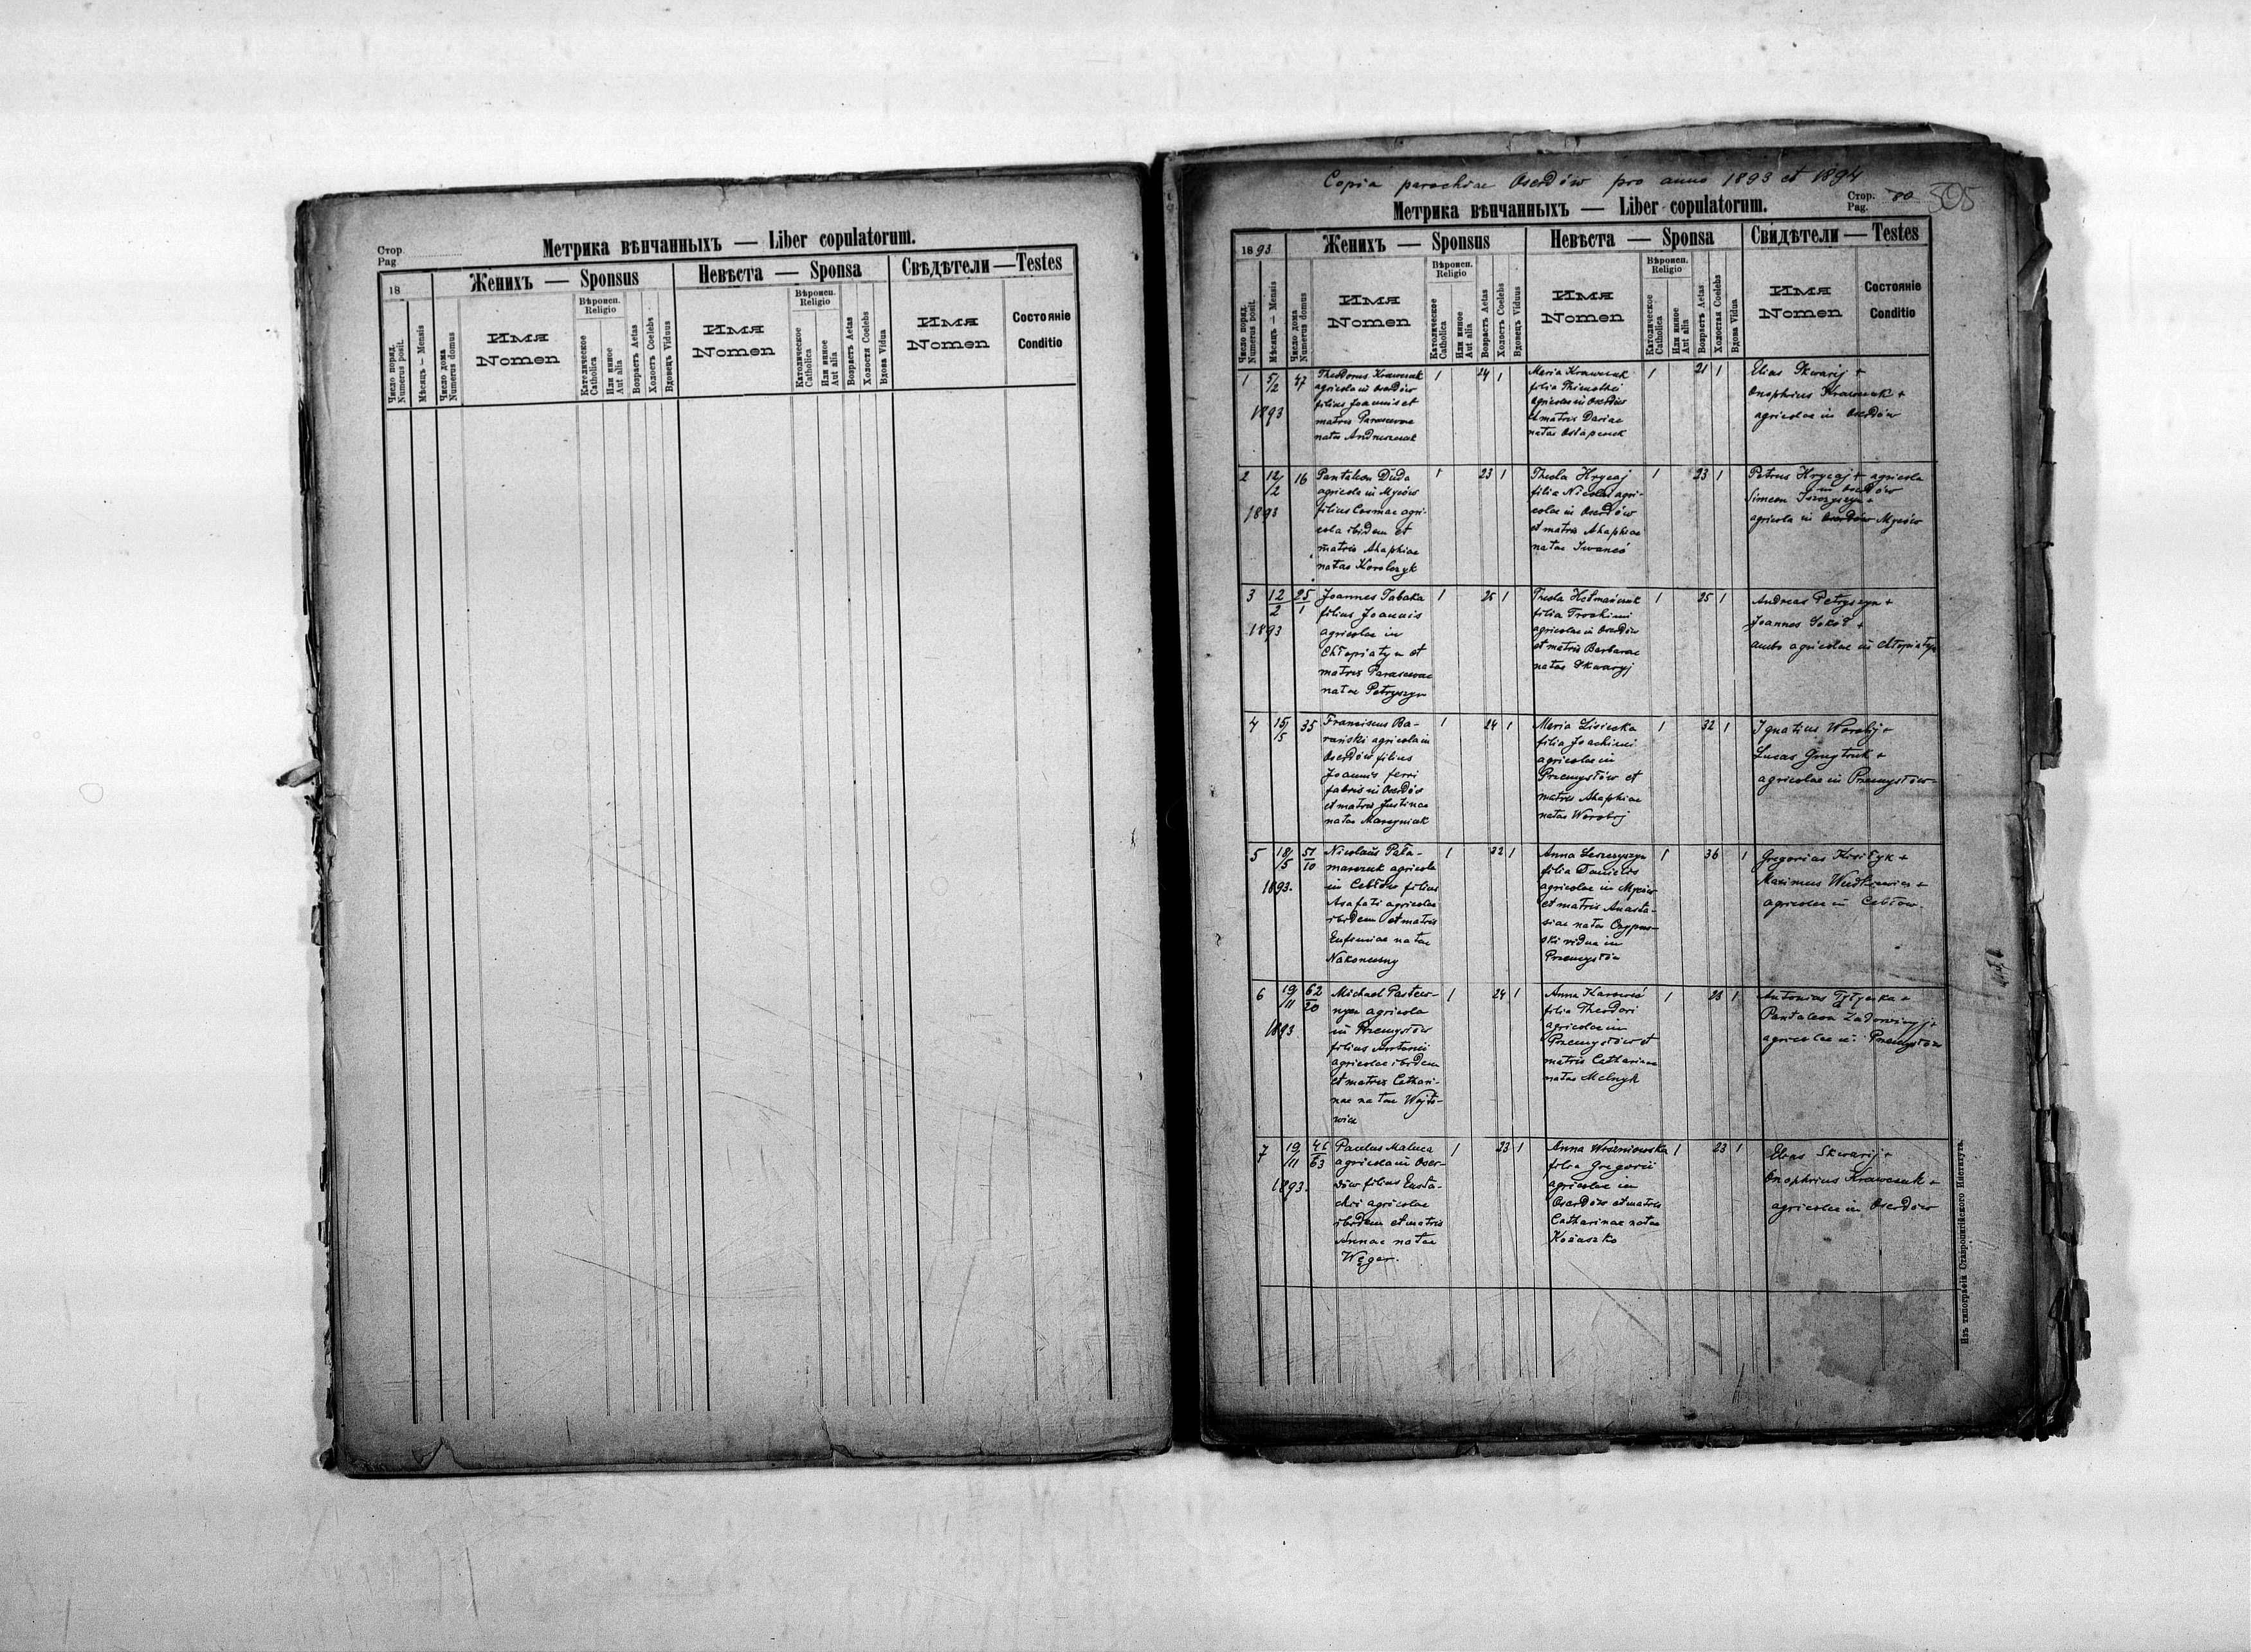 Стор.
Pag.
Метрика вѣнчанныхъ — Liber copulatorum.
18
Женихъ — Sponsus
Невѣста — Sponsa
Свѣдѣтели — Testes
Число поряд.
Numerus posit.
Мѣсяцъ — Mensis
Число дома
Numerus domus
Имя
Nomen
Вѣроисп.
Religio
Католическое
Catholica
Или иное
Aut alia
Возрастъ Aetas
Холостъ Coelebs
Вдовецъ Viduus
Имя
Nomen
Вѣроисп.
Religio
Католическое
Catholica
Или иное
Aut alia
Возрастъ Aetas
Холостая Coelebs
Вдова Vidua
Имя
Nomen
Состояніе
Conditio
Copia parochiae Oserdów pro anno 1893 et 1894
Метрика вѣнчанныхъ — Liber copulatorum.
Стор.
Pag. 80
305
1893
Женихъ — Sponsus
Невѣста — Sponsa
Свидѣтели — Testes
Число поряд.
Numerus posit.
Мѣсяцъ — Mensis
Число дома
Numerus domus
Имя
Nomen
Вѣроисп.
Religio
Католическое
Catholica
Или иное
Aut alia
Возрастъ Aetas
Холостъ Coelebs
Вдовецъ Viduus
Имя
Nomen
Вѣроисп.
Religio
Католическое
Catholica
Или иное
Aut alia
Возрастъ Aetas
Холостая Coelebs
Вдова Vidua
Имя
Nomen
Состояніе
Conditio
1 5/2 1893 47
Theodorus Krawczuk
agricola in Oserdów
filius Joannis et
matris Parascevae
natae Andruszczak
1 24 1
Maria Krawczuk
filia Thimothei
agricolae in Oserdów
et matris Dariae
natae Ostapczuk
1 21 1
Elias Skwarij +
Onophrius Krawczuk +
agricolae in Oserdów
2 12/2 1893 16
Pantaleon Duda
agricola in Myców
filius Cosmae agri-
cola ibidem et
matris Ahaphiae
natae Korolczyk
1 23 1
Thecla Hrycaj
filia Nicolai agri-
colae in Oserdów
et matris Ahaphiae
natae Iwaneć
1 23 1
Petrus Hrycaj + agricola
in Oserdów
Simeon +
agricola in Oserdów Myców
3 12/2 1893 25/1
Joannes Tabaka
filius Joannis
agricolae in
Chłopiatyn et
matris Parascevae
natae Petryszyn
1 25 1
Thecla Hetmańczuk
filia Trochimi
agricolae in Oserdów
et matris Barbarae
natae Skwaryj
1 25 1
Andreas Petryszyn +
Joannes Sokół +
ambo agricolae in Chłopiatyn
4 15/5 35
Franciscus Ba-
rański agricola in
Oserdów filius
Joannis ferri
fabris in Oserdów
et matris Justinae
natae Marcyniak
1 24 1
Maria Lisiecka
filia Joachimi
agricolae in
Przemysłów et
matris Ahaphiae
natae Worobij
1 32 1
Ignatius Worobij +
Lucas +
agricolae in Przemysłów
5 18/5 1893. 51/10
Nicolaus Pała-
marczuk agricola
in Cebłów filius
Asafati agricolae
ibidem et matris
Eufemiae natae
Nakoneczny
1 32 1
Anna Leszczyszyn
filia Danielis
agricolae in Myców
et matris Anasta-
siae natae
vidua in
Przemysłów
1 36 1
Gregorius +
Maximus +
agricolae in Cebłów.
6 19/11 1893 62/20
Michael
agricola
in Przemysłów
filius Antonii
agricolae ibidem
et matris Cathari-
nae natae Wojto-
wicz
1 24 1
Anna
filia Theodori
agricolae in
Przemysłów et
matris Catharinae
natae Melnyk
1 23 1
Antonius +
Pantaleon +
agricolae in Przemysłów
7 19/11 1893. 46/63
Paulus Maluca
agricola in Oser-
dów filius Eusta-
chii agricolae
ibidem et matris
Annae natae
Węgar.
1 23 1
Anna Wiszniowska
filia Gregorii
agricolae in
Oserdów et matris
Catharinae natae
Kożuszko
1 23 1
Elias Skwarij +
Onophrius Krawczuk +
agricolae in Oserdów
Изъ типографіи Ставропигійского Института.